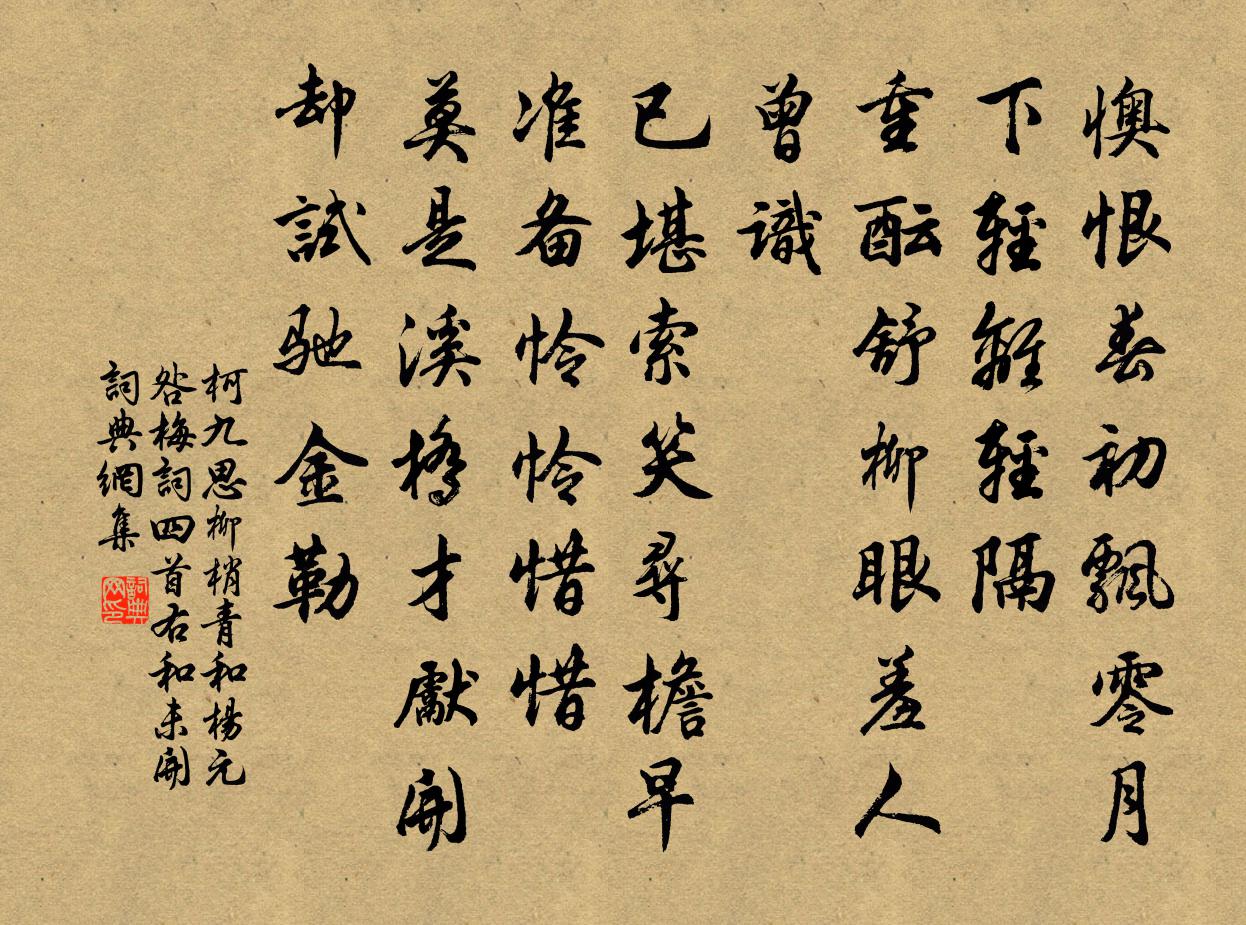 懊恨春初飄零月
下輕離輕隔
重醞舒柳眼羞人
曾識
已堪索笑尋檐早
准备怜怜惜惜
莫是溪橋才獻開
却試馳金勒
柯九思柳梢青和楊元
咎梅詞四首右和未開
詞典網集
詞典网印